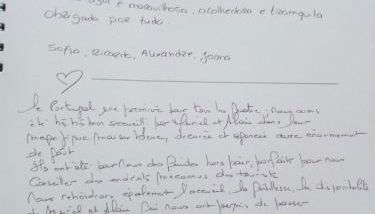 azul é maravilhosa, acolhedora e tranquila
obrigada por tudo.
Sofia, Ricardo, Alexandre, Joana
le Portugal une première pour tous les quatre, nous avons
été très bien accueilli par Muriel et Alain dans leur
magnifique maison bleue, décorée et agencée avec énormément
de goût
Ils ont été pour nous des guides hors pair, parfaits pour nous
conseiller des endroits méconnus des touristes
Nous retiendrons également l'accueil, la gentillesse, la disponibilité
de Muriel et Alain qui nous ont permis de passer